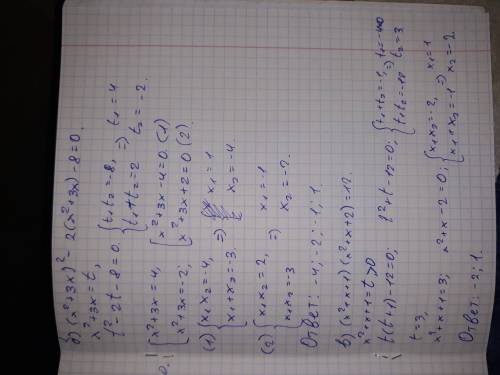 б) (x²+3x)² - 2(x²+3x) - 8 = 0.
x²+3x = t,
t² - 2t - 8 = 0. { t₁t₂ = -8, t₁+t₂ = 2 => t₁ = 4 t₂ = -2.
[ x²+3x = 4, x²+3x = -2, [ x²+3x-4 = 0 (1) x²+3x+2 = 0 (2).
(1) { x₁x₂ = -4, x₁+x₂ = -3. => x₁ = 1 x₂ = -4.
(2) { x₁x₂ = 2, x₁x₂ = -3 => x₁ = -1 x₂ = -2.
Ответ: -4; -2; -1; 1.
в) (x²+x+1)(x²+x+2) = 12.
x²+x+1 = t > 0
t(t+1) - 12 = 0; t²+t-12 = 0; { t₁+t₂ = -1, t₁t₂ = -12 => t₂ = 3
t = 3,
x²+x+1 = 3; x²+x-2 = 0; { x₁x₂ = -2, x₁+x₂ = -1 => x₁ = 1 x₂ = -2.
Ответ: -2; 1.